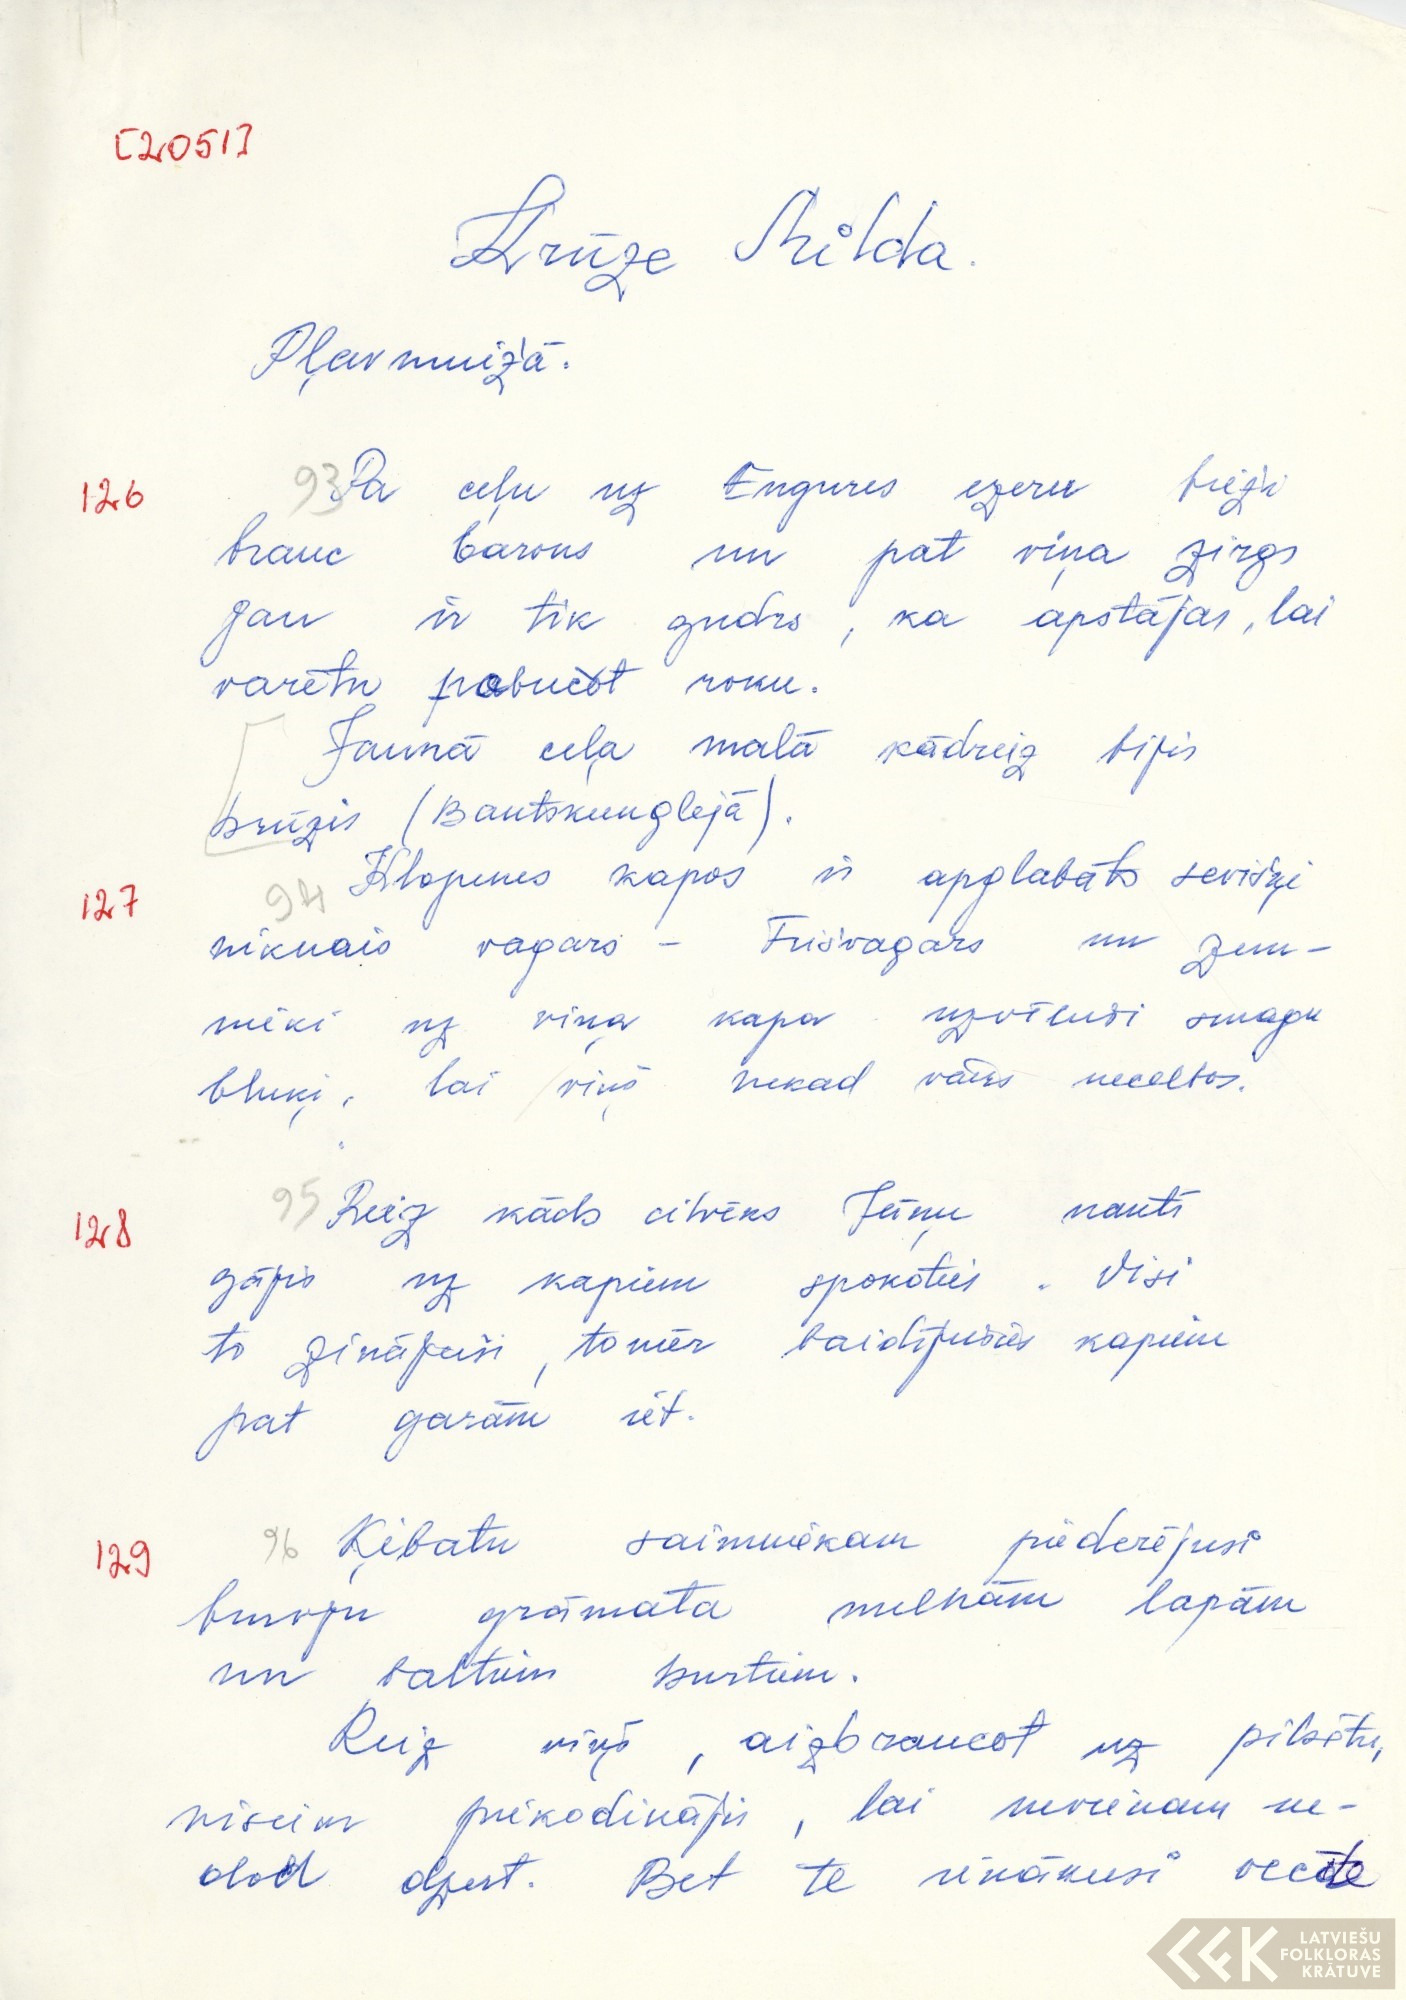 [2051]
Krūze Milda.
Pļavmuižā.
126 93 Pa ceļu uz Engures ezeru bieži
brauc barons un pat viņa zirgs
jau ir tik gudrs, ka apstājas, lai
varētu pabučot roku.
Jaunā ceļa malā kādreiz bijis
krūzis (Bautskunglejā).
127 94 Klapenes kapos ir apglabāts sevišķi
niknais vagars - Frišvagars un zem-
nieki uz viņa kapa uzvēluši smagu
bluķi, lai viņš nekad vairs neceltos.
128 95 Reiz kāds cilvēks Jāņu naktī
gājis uz kapiem spokoties. Visi
to zinājuši, tomēr baidījušies kapiem
pat garām iet.
129 96 Ķibatu saimniekam piederējusi
burvju grāmata melnām lapām
un baltiem burtiem.
Reiz viņš, aizbraucot uz pilsētu,
visiem piekodinājis, lai nevienam ne-
dod dzert. Bet te ienākusi vecāte
LATVIEŠU
FOLKLORAS
KRĀTUVE